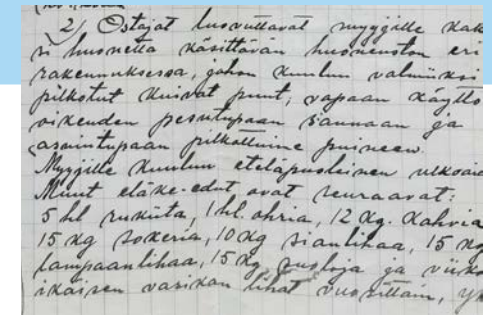 2) Ostajat luovuttavat myyjille kak
si huonetta käsittävän huoneuston eri
rakennuksessa, johon kuuluu valmiiksi
pilkotut kuivat puut, vapaan käyttö
oikeuden pesutupaan saunaan ja
asuintupaan pilkottuine puineen.
Myyjille kuuluu eteläpuoleinen ulkoaia
Muut eläke-edut ovat seuraavat:
5 hl rukiita, 1 hl. ohria, 12 kg. kahvia
15 kg sokeria, 10 kg sianlihaa, 15 kg
lampaanlihaa, 15 kg ja viiko
ikäisen vasikan lihat vuosittain, yk